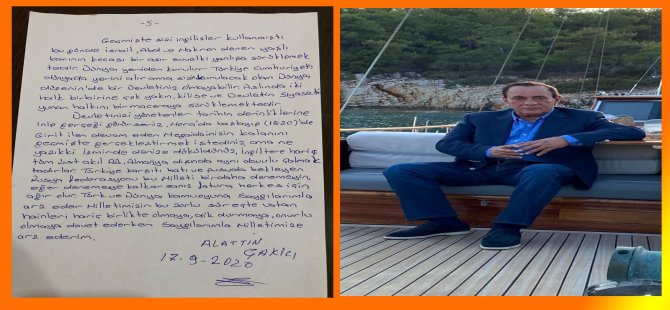 -5-
Geçmişte sizi ingilizler kullanmıştı
bu günde israil, Abd ve Makron denen yaşlı
karının kocası bir asır evvelki yanlışa sürüklemek
tedir. Dünya yeniden kurulur Türkiye Cumhuriyeti
dünyada yerini alır ama
olan Dünya
düzeninde bir Devletiniz olmayabilir. Aslında iki
halk birbirine çok yakın, kilise ve Devletin Siyaseti
yunan halkını bir maceraya sürüklemektedir.
Devletinizi yönetenler tarihin derinliklerine
inip gerçeği görürseniz, Mora'da başlayıp (1820)'de
Girit ilen devam eden Megaideinizin kalanını
geçmişte gerçekleştirmek istediniz, ama ne
yazıkki İzmirinde denize döküldünüz, ingiltere hariç
tüm üst akıl AB. Almanya dışında aynı davulu çalmak
tadırlar. Türkiye karşıtı batı ve pusuda bekleyen
Rusya federasyonu bu Milleti birdaha denemeyin,
eğer denemeye kalkarsanız fatura herkes için
ağır olur. Türk ve Dünya kamuoyuna Saygılarımla
arz eder Milletimizin bu zorlu süreçte vatan
hainleri hariç birlikte olmaya, dik durmaya, onurlu
olmaya davet ederken Saygılarımla Milletimize
arz ederim.
ALATTİN
ÇAKICI
17-9-2020